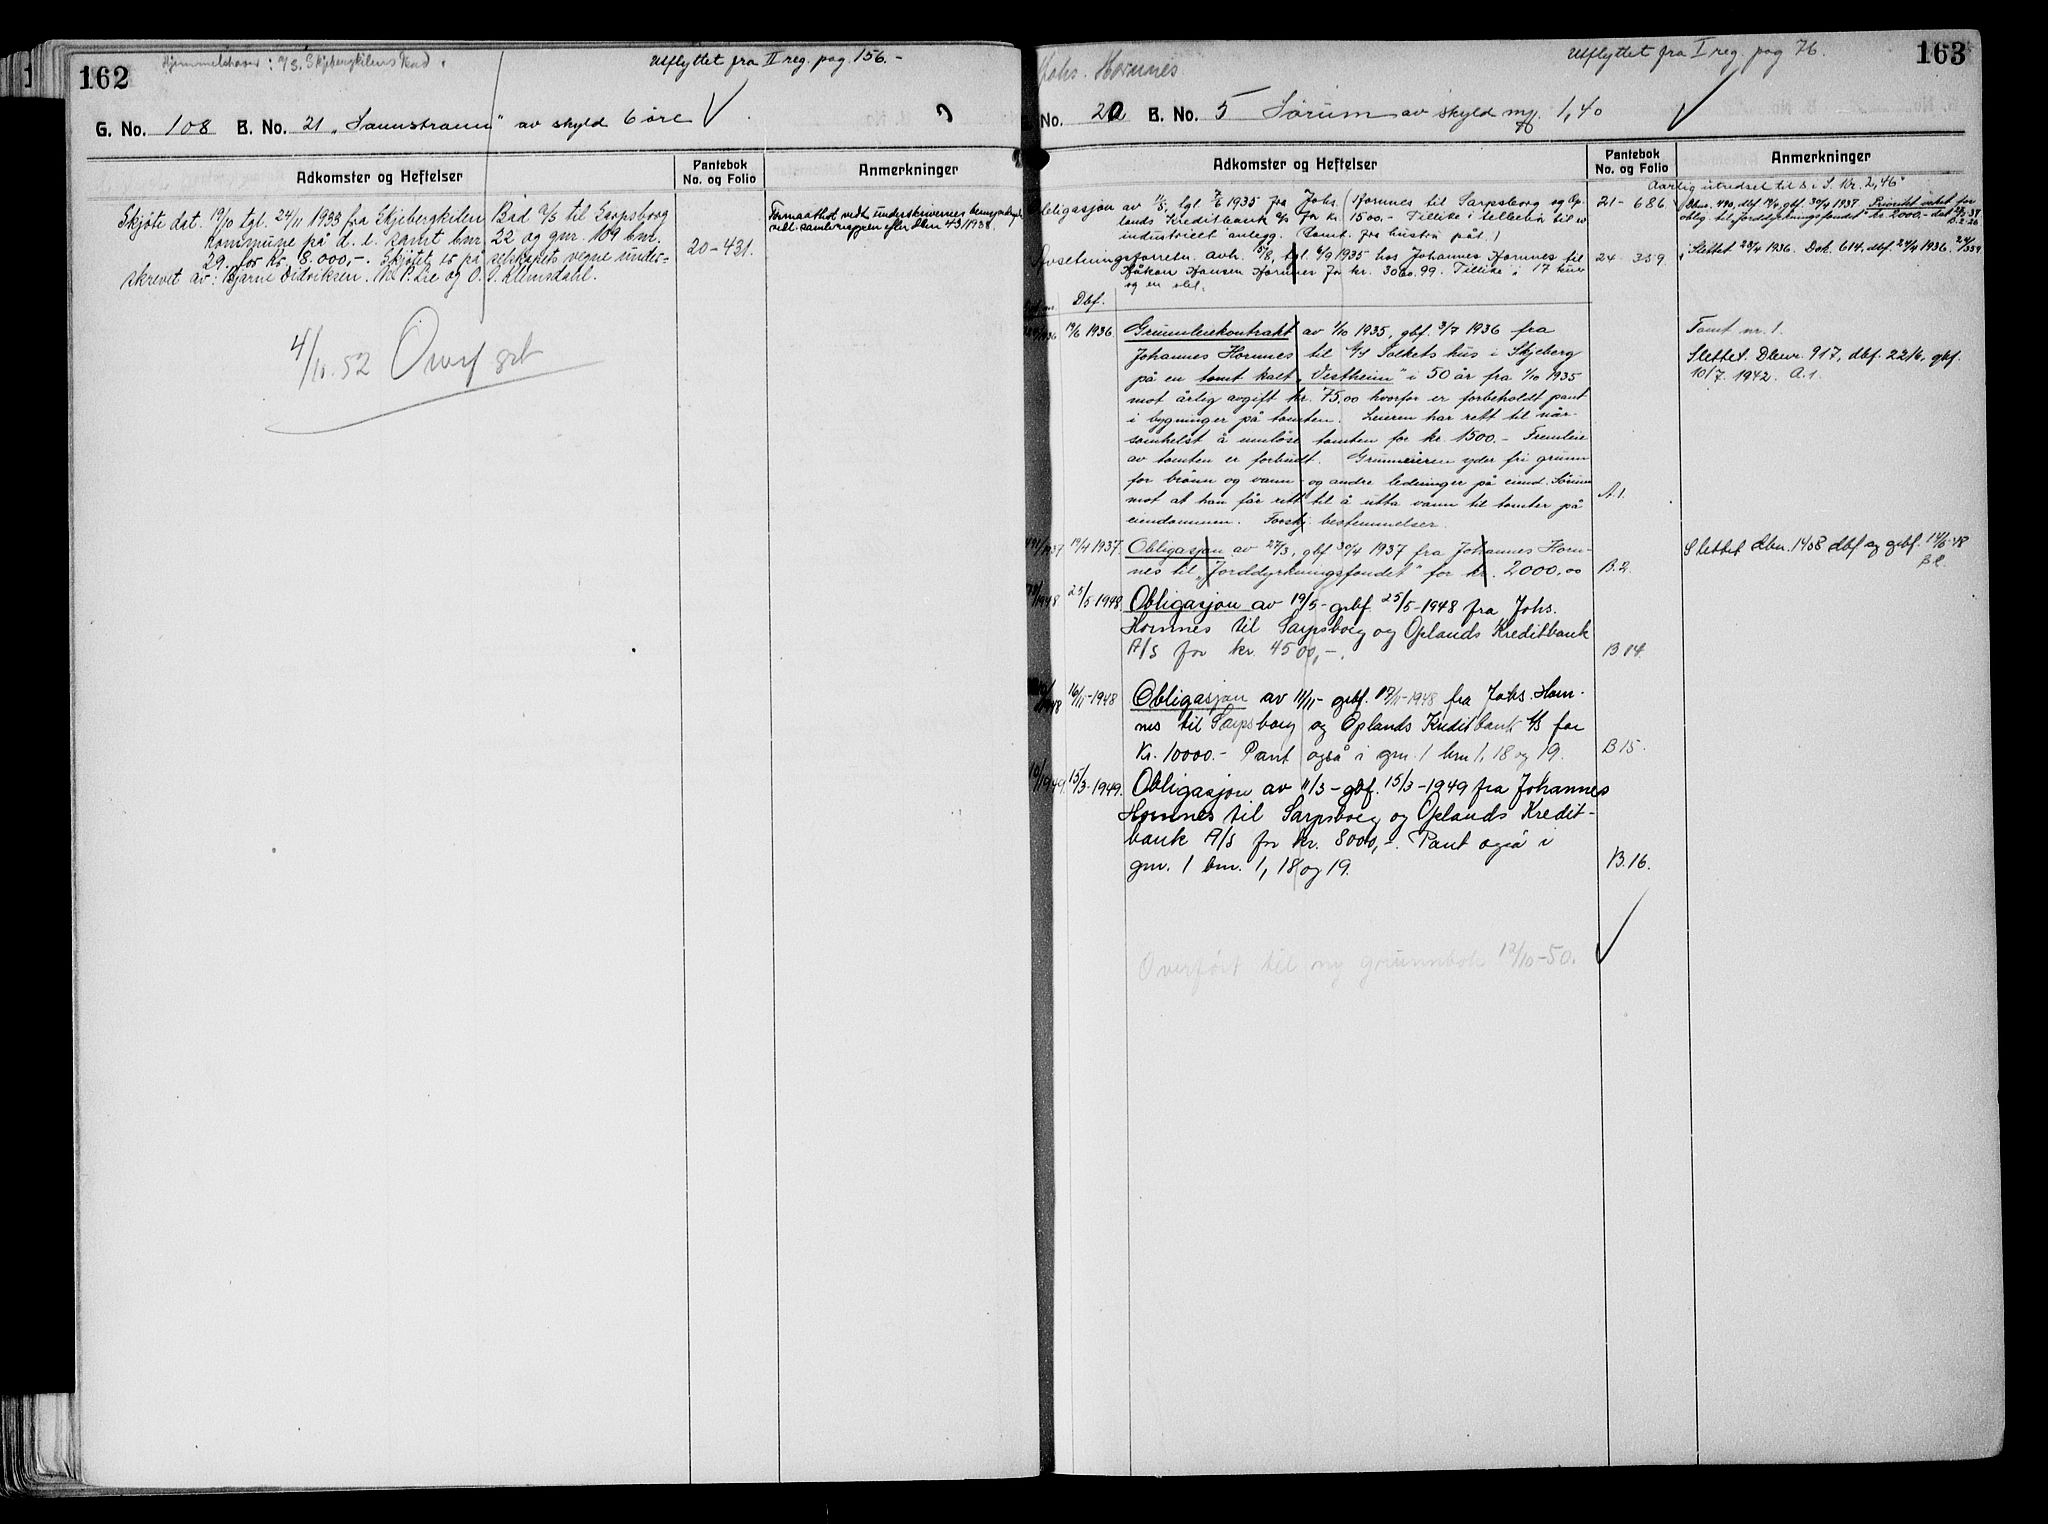 162
Hjemmelshaver: A/S. Skjebergkilens Bad.
Utflyttet fra II reg. pag. 156. -
G. No. 108 B. No. 21 „Sannstrann" av skyld 6 øre
Adkomster og Heftelser
Pantebok
No. og Folio
Anmerkninger
Skjøte dat. 19/10 tgl. 24/11 1933 fra Skjebergkilens Bad A/S til Sarpsborg
kommune på d. e. samt bnr. 22 og gnr. 109 bnr.
29, for kr 8.000,-. Skjøtet er på selskapets vegne under-
skrevet av: Bjarne Didriksen, P. Lie og O. J. Klemsdahl.
20-431.
4/11.52 Overført
163
Johs. Hornnes
Utflyttet fra I reg. pag 76.
No. 20 B. No. 5 Sørum av skyld 1,40
Adkomster og Heftelser
Pantebok
No. og Folio
Anmerkninger
Aarlig utredsel til kr. 2,46
Obligasjon av 11/5, tgl. 7/6 1935 fra Johs. Hornnes til Sarpsborg og Op-
lands Kreditbank A/S for kr. 1500.- Tillike i tilbehør til
industrielt anlegg. (Samt. fra hustru påt.)
21-686
Dbnr. 490, dbf 19/4, gbf. 30/4 1937. Prioritet veket for
oblig. til Jorddyrkningsfondet kr. 2000,-
avh. 15/8, tgl. 6/9 1935 hos Johannes Hornnes til
Håkon Hansen Hornnes for kr. 3060.99. Tillike i 17 kuer
og en
24-359
Slettet 23/4 1936. Dok. 614, dbf 22/4 1936.
Dbf.
19/6 1936
Grunnleiekontrakt av 1/10 1935, gbf 3/7 1936 fra
Johannes Hornnes til A/S Folkets hus i Skjeberg
på en tomt kalt „Vestheim" i 50 år fra 1/10 1935
mot årlig avgift kr. 75,00 hvorfor er forbeholdt pant
i bygninger på tomten. Leieren har rett til når-
somhelst å innløse tomten for kr. 1500.- Fremleie
av tomten er forbudt. Grunneieren yder fri grunn
for brønn og vann- og andre ledninger på eiend. Sørum
mot at han får rett til å utta vann til tomter på
eiendommen. Forskj. bestemmelser.
A.1.
Tomt nr. 1.
Slettet. Dbnr. 917, dbf. 22/6, gbf.
10/7. 1942. A.1.
19/4 1937.
Obligasjon av 27/3, gbf 30/4 1937 fra Johannes Horn-
nes til „Jorddyrkningsfondet" for kr. 2000,00
B.2.
Slettet dbn. 1408 dbf og gbf.
25/5-1948.
Obligasjon av 19/5- gbf 25/5-1948 fra Johs.
Hornnes til Sarpsborg og Oplands Kreditbank
A/S for kr. 4500,-.
B.14.
16/11-1948
Obligasjon av 11/11- gbf. 17/11-1948 fra Johs. Horn-
nes til Sarpsborg og Oplands Kreditbank A/S for
Kr. 10000.- Pant også i gnr. 1 bnr 1, 18 og 19.
B 15.
15/3-1949.
Obligasjon av 11/3- gbf. 15/3-1949 fra Johannes
Hornnes til Sarpsborg og Oplands Kredit-
bank A/S for kr. 8000,-. Pant også i
gnr. 1 bnr. 1, 18 og 19.
B.16.
Overført til ny grunnbok 12/10-50.